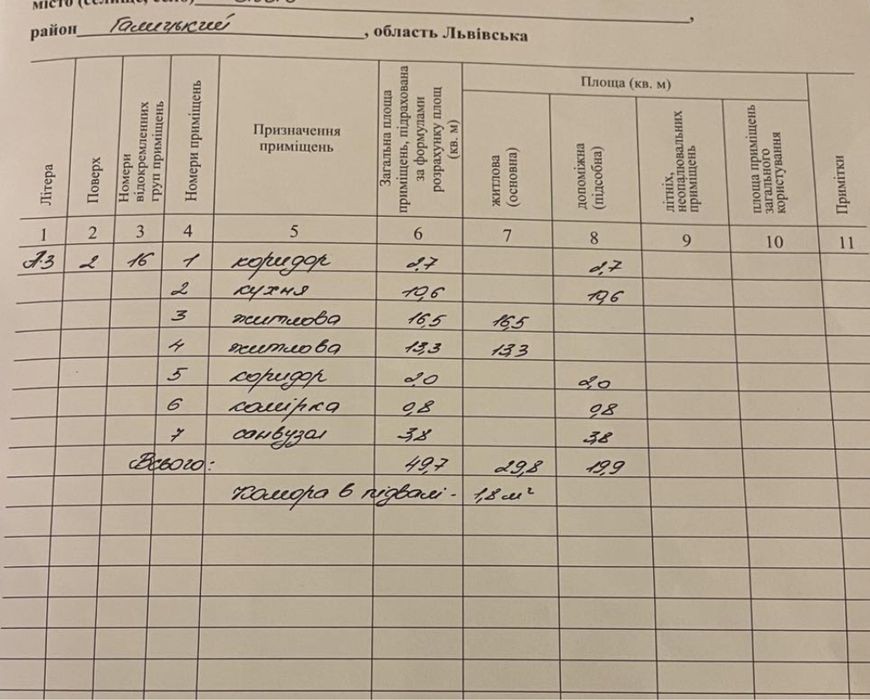 місто (селище, село)
район Галицький, область Львівська
Літера
Поверх
Номери відокремленних груп приміщень
Номери приміщень
Призначення приміщень
Загальна площа приміщень, підрахована за формулами розрахунку площ (кв. м)
Площа (кв. м)
житлова (основна)
допоміжна (підсобна)
літніх, неопалювальних приміщень
площа приміщень загального користування
Примітки
1 2 3 4 5 6 7 8 9 10 11
А-3 2 16 1 коридор 2,7 2,7
2 кухня 10,6 10,6
3 житлова 16,5 16,5
4 житлова 13,3 13,3
5 коридор 2,0 2,0
6 комірка 0,8 0,8
7 санвузол 3,8 3,8
Всього: 49,7 29,8 19,9
Комора в підвалі - 1,8 м²